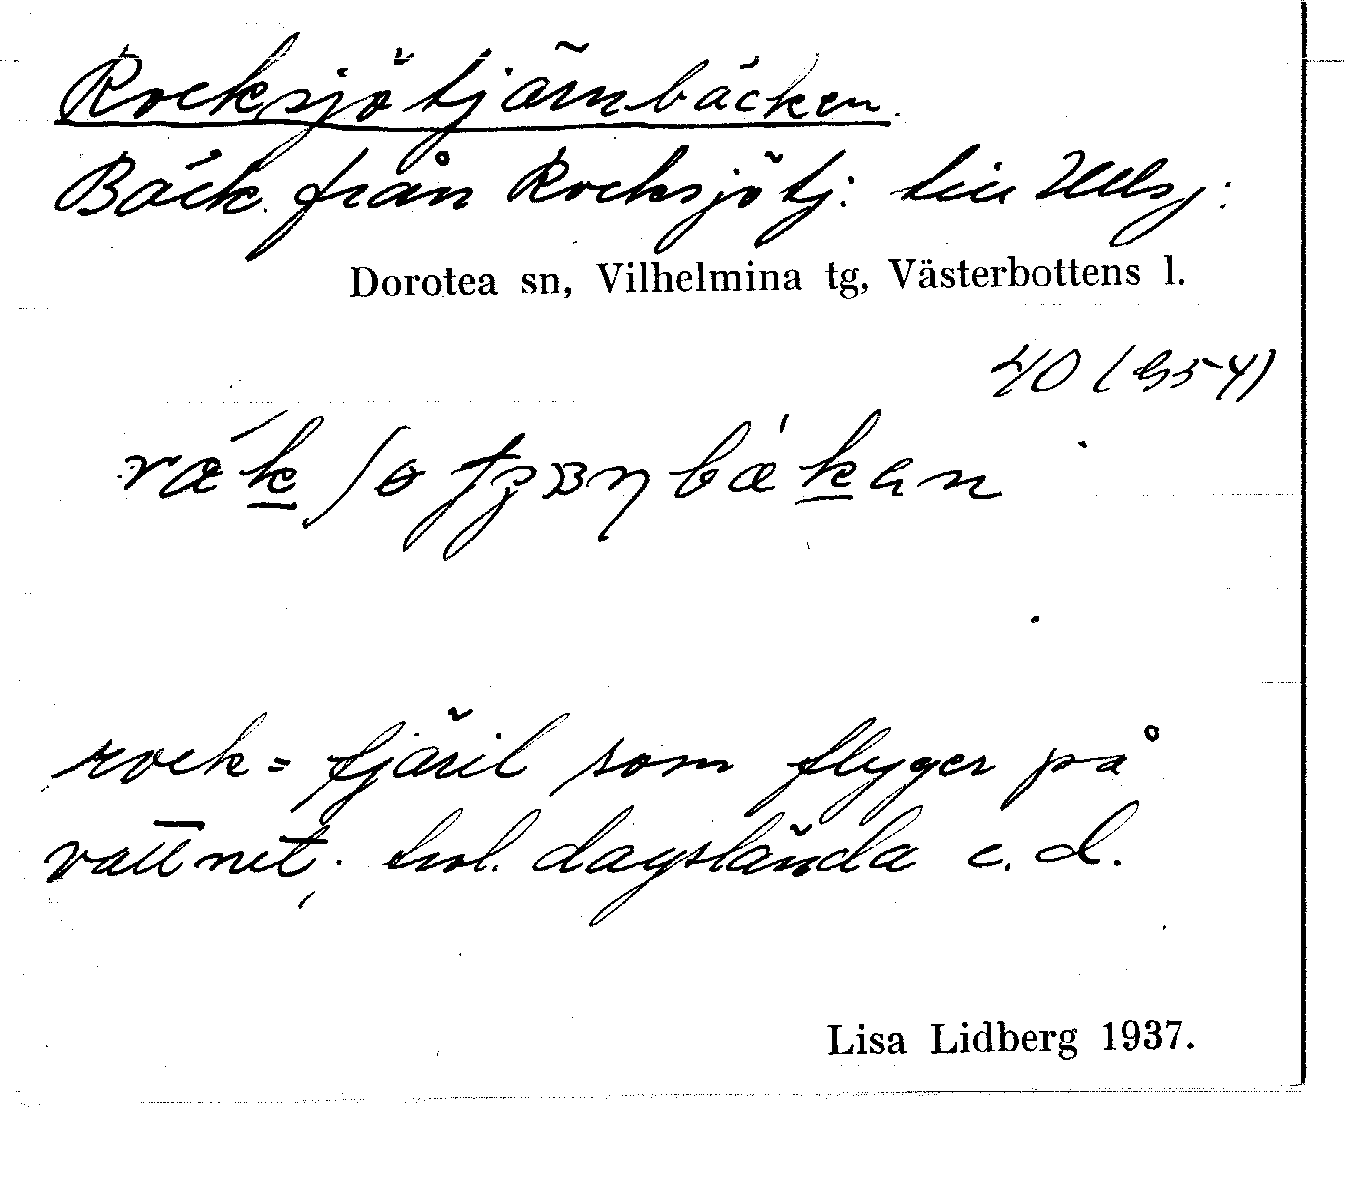 Rocksjötjärnbäcken.
Bäck från Rocksjötj: till
Dorotea sn, Vilhelmina tg, Västerbottens l.
40 (954)
rock = fjäril som flyger på
vattnet; trol. dagslända e. d.
Lisa Lidberg 1937.